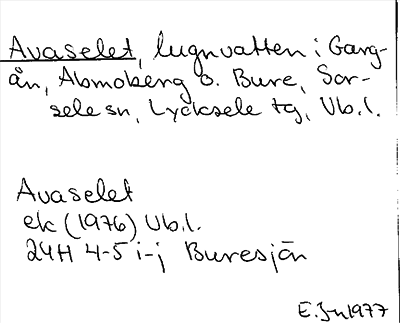 Avaselet, lugnvatten i Garg-
ån, Abmoberg o. Bure, Sor-
sele sn, Lycksele tg, Vb.l.
Avaselet
ek (1976) Vb.l.
24H 4-5 i-j Buresjön
E.Jn 1977